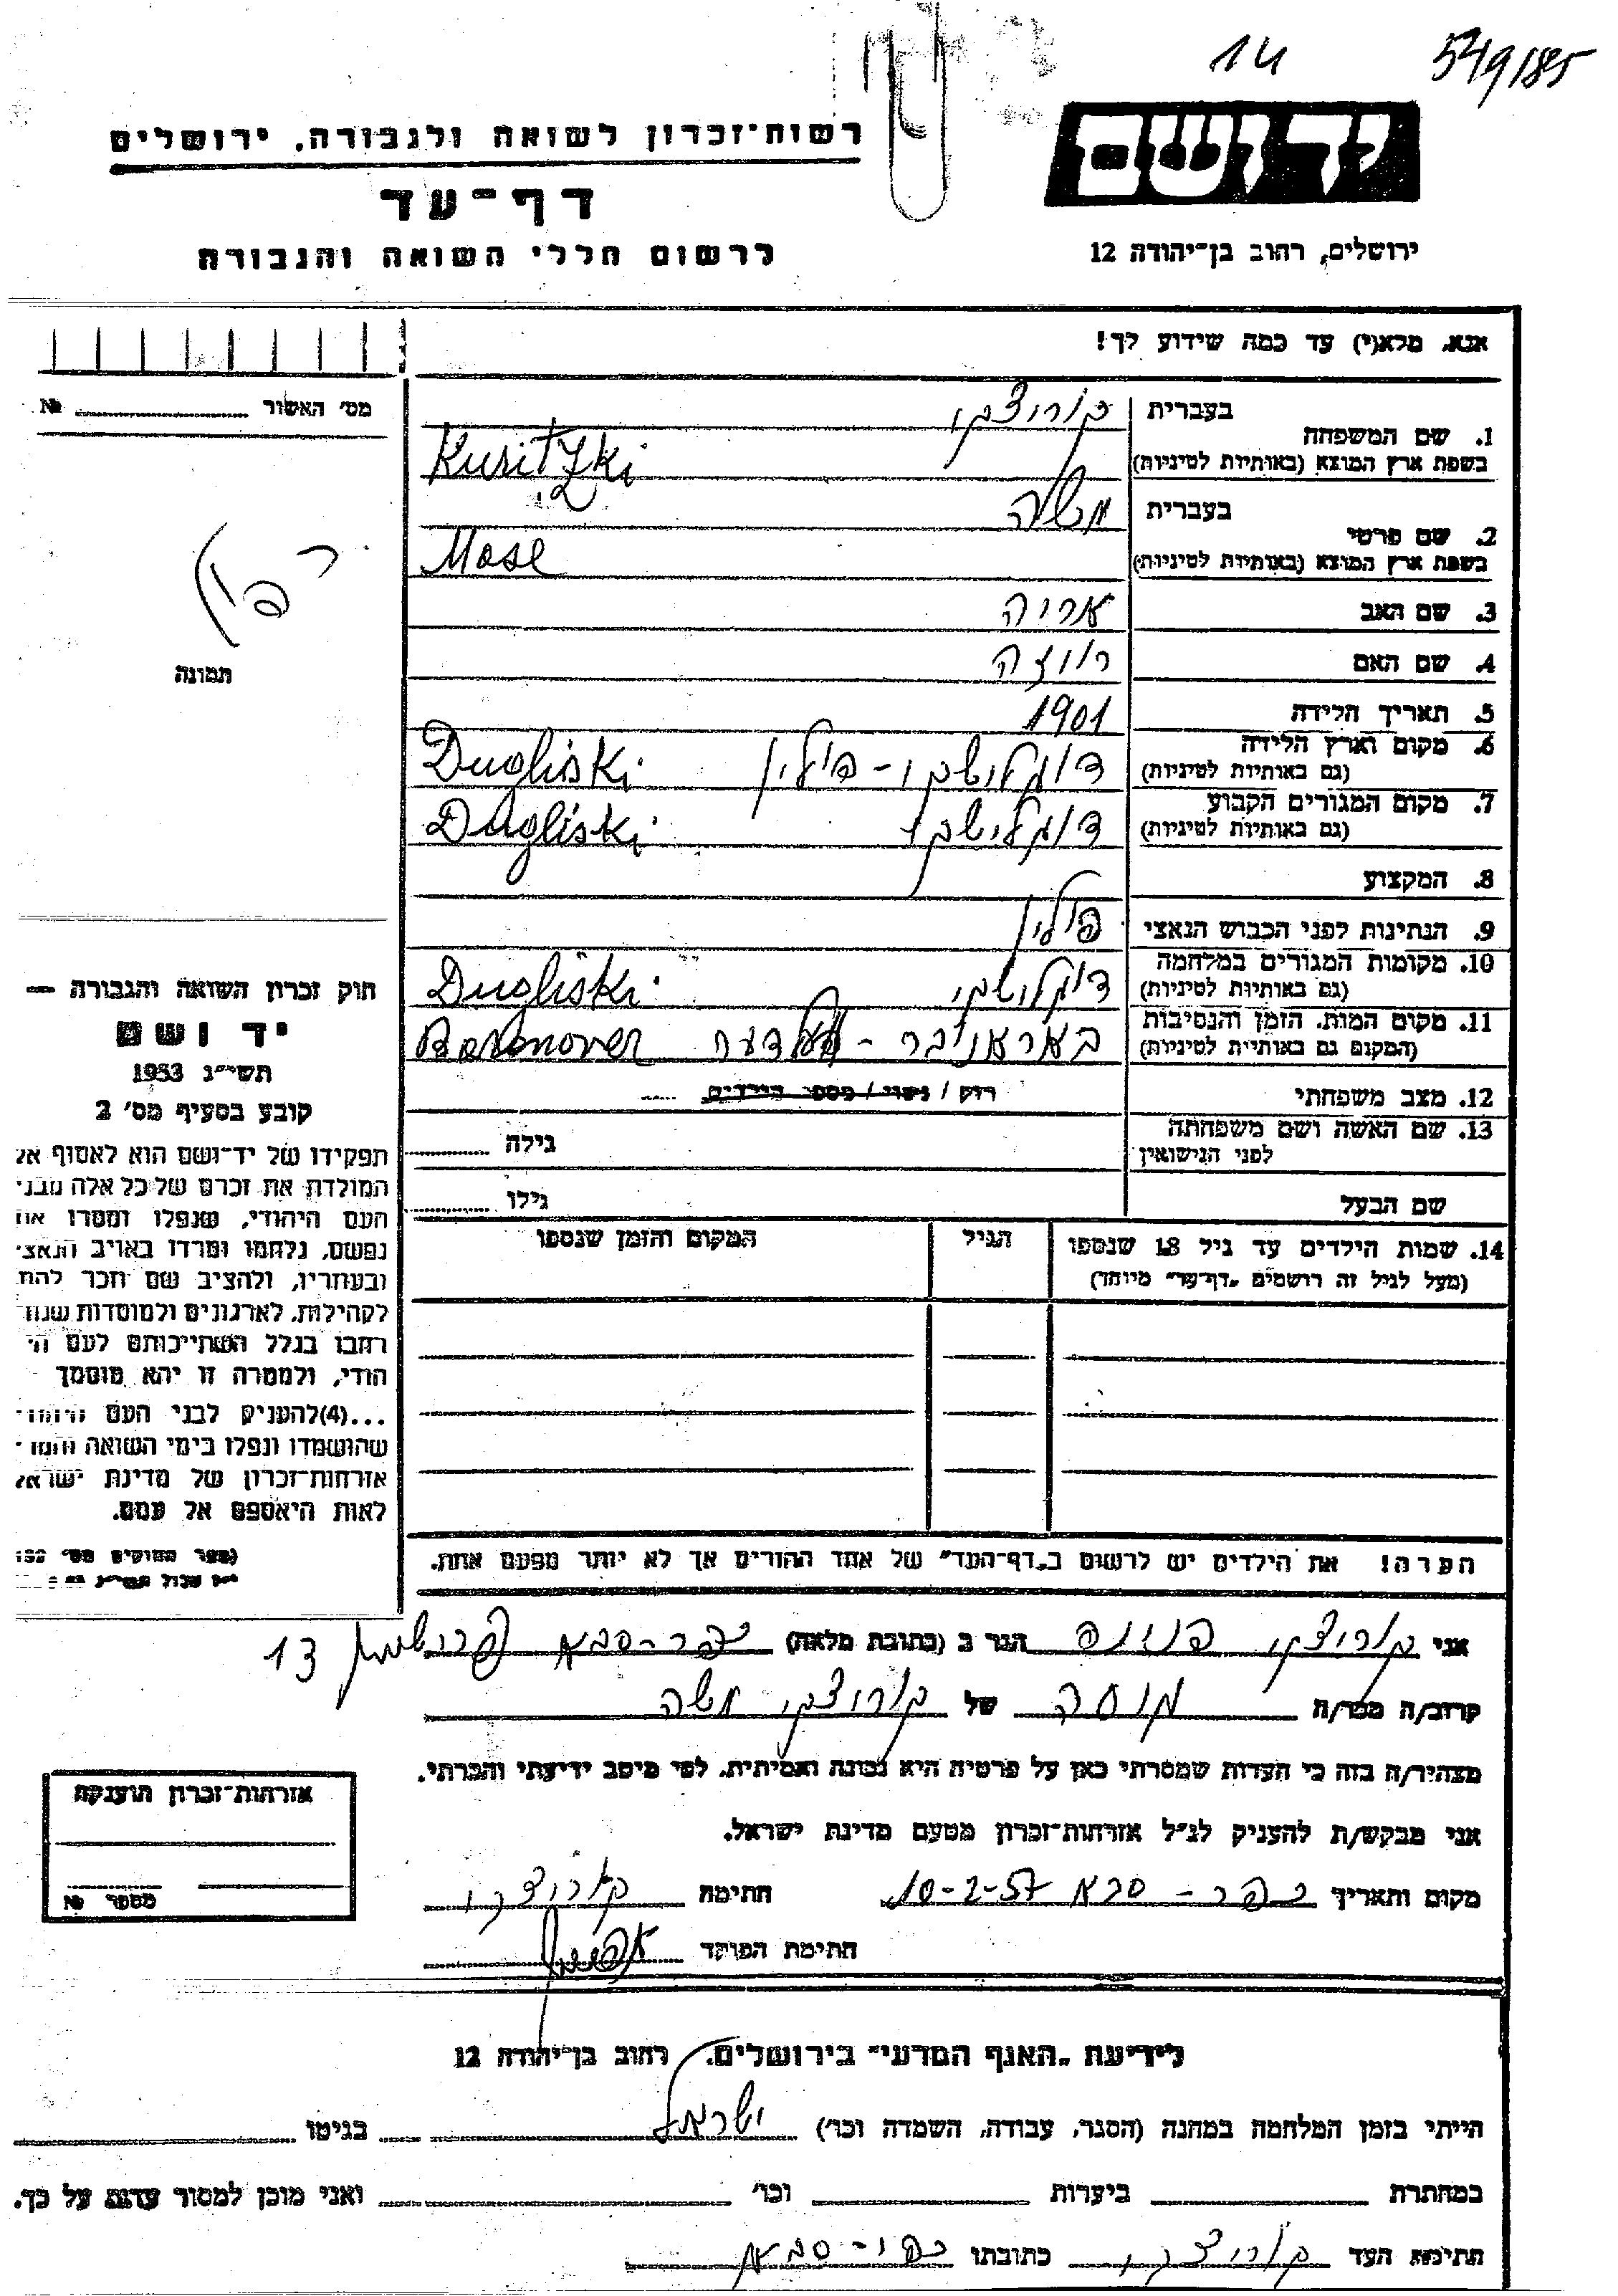 14
549/185
יד ושם
רשות־זכרון לשואה ולגבורה, ירושלים
דף־עד
לרשום חללי השואה והגבורה
ירושלים, רחוב בן־יהודה 12
אנא, מלא(י) עד כמה שידוע לך!
מס' האשור №
תמונה
1. שם המשפחה
בעברית קוריצקי
בשפת ארץ המוצא (באותיות לטיניות) Kuritzki
2. שם פרטי
בעברית משה
בשפת ארץ המוצא (באותיות לטיניות) Mose
3. שם האב אריה
4. שם האם
5. תאריך הלידה 1901
6. מקום וארץ הלידה
(גם באותיות לטיניות) דוגלישקי - פולין Dugliski
7. מקום המגורים הקבוע
(גם באותיות לטיניות) דוגלישקי Dugliski
8. המקצוע
9. הנתינות לפני הכבוש הנאצי פולין
10. מקומות המגורים במלחמה
(גם באותיות לטיניות) דוגלישקי Dugliski
11. מקום המות, הזמן והנסיבות
(המקום גם באותיות לטיניות)
12. מצב משפחתי רוק / נשוי / מספר הילדים
13. שם האשה ושם משפחתה
לפני הנישואין גילה
שם הבעל גילו
14. שמות הילדים עד גיל 18 שנספו
(מעל לגיל זה רושמים "דף־עד" מיוחד)
הגיל
המקום והזמן שנספו
חוק זכרון השואה והגבורה —
יד ושם
תשי"ג 1953
קובע בסעיף מס' 2
תפקידו של יד־ושם הוא לאסוף אל
המולדת את זכרם של כל אלה מבני
העם היהודי, שנפלו ומסרו את
נפשם, נלחמו ומרדו באויב הנאצי
ובעוזריו, ולהציב שם וזכר להם,
לקהילות, לארגונים ולמוסדות שנח־
רבו בגלל השתייכותם לעם הי־
הודי, ולמטרה זו יהא מוסמך
...(4) להעניק לבני העם היהודי
שהושמדו ונפלו בימי השואה והמרי
אזרחות־זכרון של מדינת ישראל
לאות היאספם אל עמם.
הערה! את הילדים יש לרשום ב"דף־העד" של אחד ההורים אך לא יותר מפעם אחת.
אני קוריצקי פנחס הגר ב (כתובת מלאה) כפר-סבא 13
קרוב/ה מכר/ה של קוריצקי משה
מצהיר/ה בזה כי העדות שמסרתי כאן על פרטיה היא נכונה ואמיתית, לפי מיטב ידיעתי והכרתי.
אני מבקש/ת להעניק לנ"ל אזרחות־זכרון מטעם מדינת ישראל.
מקום ותאריך כפר-סבא 10-2-57 חתימה קוריצקי
חתימת הפוקד
אזרחות־זכרון תוענקה
מספר №
לידיעת "האגף המדעי" בירושלים, רחוב בן־יהודה 12
הייתי בזמן המלחמה במחנה (הסגר, עבודה, השמדה וכו') ישראל בגיטו
במחתרת ביערות וכו' ואני מוכן למסור עדות על כך.
חתימת העד קוריצקי כתובתו כפר-סבא